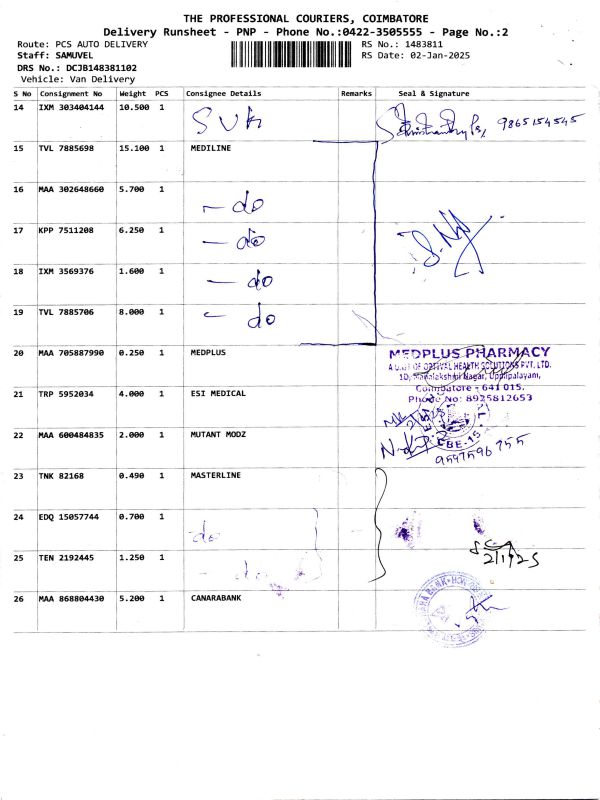 THE PROFESSIONAL COURIERS, COIMBATORE
Delivery Runsheet - PNP - Phone No.:0422-3505555 - Page No.:2
Route: PCS AUTO DELIVERY
RS No.: 1483811
Staff: SAMUVEL
RS Date: 02-Jan-2025
DRS No.: DCJB148381102
Vehicle: Van Delivery
S No Consignment No Weight PCS Consignee Details Remarks Seal & Signature
14 IXM 303404144 10.500 1 SVK 9865154545
15 TVL 7885698 15.100 1 MEDILINE
16 MAA 302648660 5.700 1 - do
17 KPP 7511208 6.250 1 - do
18 IXM 3569376 1.600 1 - do
19 TVL 7885706 8.000 1 - do
20 MAA 705887990 0.250 1 MEDPLUS
MEDPLUS PHARMACY
A UNIT OF OPTIVAL HEALTH SOLUTIONS PVT. LTD.
1D, Mahalakshmi Nagar, Uppilipalayam,
Coimbatore - 641 015.
Phone No: 8925812653
21 TRP 5952034 4.000 1 ESI MEDICAL
22 MAA 600484835 2.000 1 MUTANT MODZ
CBE-15
9597596755
23 TNK 82168 0.490 1 MASTERLINE
24 EDQ 15057744 0.700 1 do
25 TEN 2192445 1.250 1 - do
2/1/25
26 MAA 868804430 5.200 1 CANARABANK